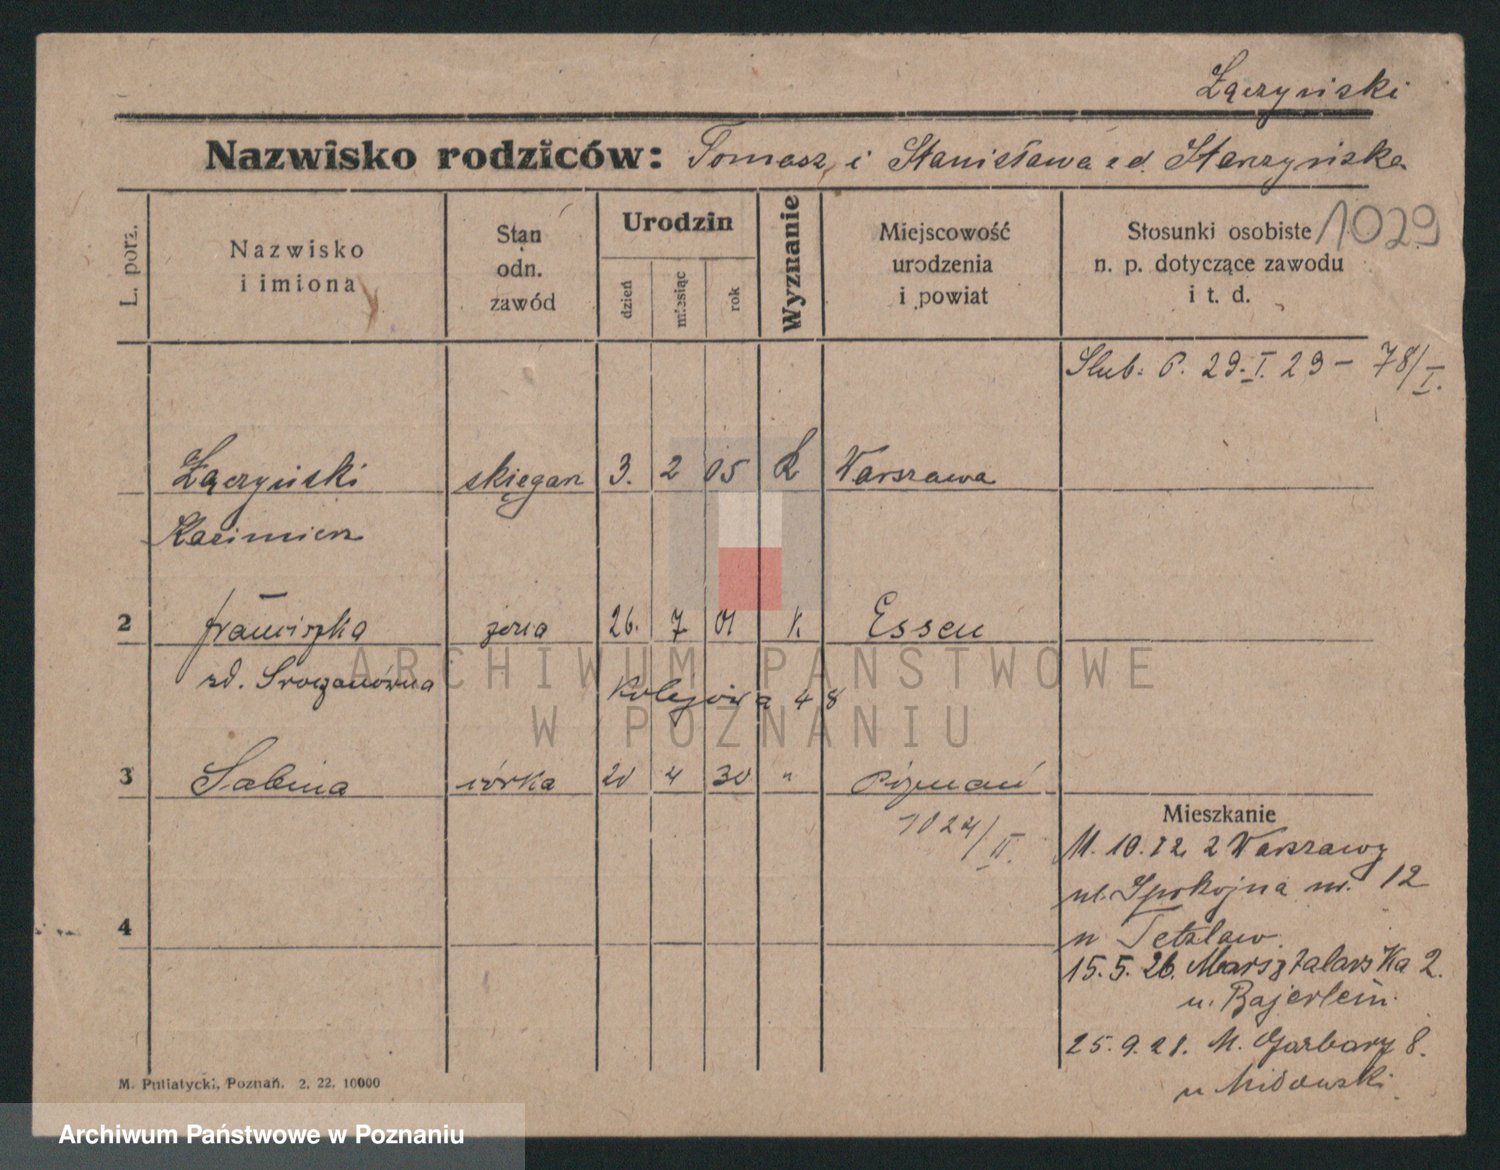 Łączyński
Nazwisko rodziców: Tomasz i Stanisława zd. Starzyńska
L. porz.
Nazwisko
i imiona
Stan
odn.
zawód
Urodzin
dzień
miesiąc
rok
Wyznanie
Miejscowość
urodzenia
i powiat
Stosunki osobiste
n. p. dotyczące zawodu
i t. d.
1029
Slub: P. 29.I.29 – 78/I.
Łączyński
Kazimierz
3. 2 05
Warszawa
2
Franciszka
żona
26. 7 01
k.
Essen
zd.
48
3
Sabina
córka
20 4 30 "
Poznań
1024/II.
4
Mieszkanie
M. 10.12. z Warszawy
ul. Spokojna nr. 12
u Tetzlaw.
15.5.26. Marsztalarska 2.
u. Bajerlein.
25.9.28. M. Garbary 8.
M. Puliatycki, Poznań. 2. 22. 10000
ARCHIWUM PAŃSTWOWE
W POZNANIU
Archiwum Państwowe w Poznaniu